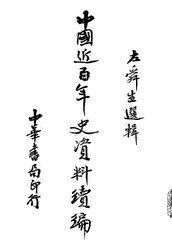 左舜生選輯
中國近百年史資料續編
中華書局印行